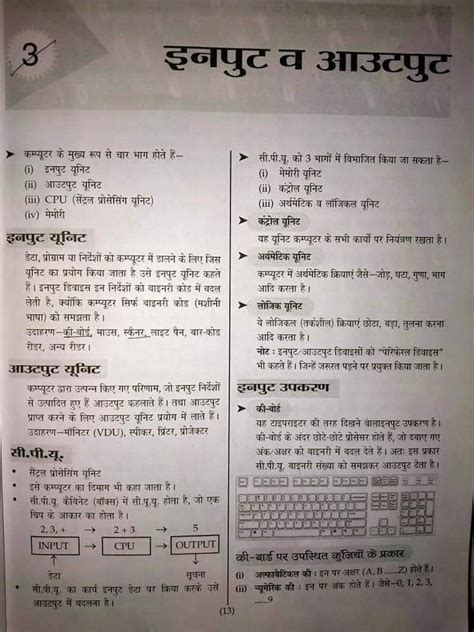 3
इनपुट व आउटपुट
➤ कम्प्यूटर के मुख्य रूप से चार भाग होते हैं–
(i) इनपुट यूनिट
(ii) आउटपुट यूनिट
(iii) CPU (सेंट्रल प्रोसेसिंग यूनिट)
(iv) मेमोरी
इनपुट यूनिट
डेटा, प्रोग्राम या निर्देशों को कम्प्यूटर में डालने के लिए जिस
यूनिट का प्रयोग किया जाता है उसे इनपुट यूनिट कहते
हैं। इनपुट डिवाइस इन निर्देशों को बाइनरी कोड में बदल
लेती है, क्योंकि कम्प्यूटर सिर्फ बाइनरी कोड (मशीनी
भाषा) को समझता है।
उदाहरण–की-बोर्ड, माउस, स्कैनर, लाइट पैन, बार-कोड
रीडर, अन्य रीडर।
आउटपुट यूनिट
कम्प्यूटर द्वारा उत्पन्न किए गए परिणाम, जो इनपुट निर्देशों
से उत्पादित हुए हैं आउटपुट कहलाते हैं। तथा आउटपुट
प्राप्त करने के लिए आउटपुट यूनिट प्रयोग में लाते हैं।
उदाहरण–मॉनिटर (VDU), स्पीकर, प्रिंटर, प्रोजेक्टर
सी.पी.यू.
• सेंट्रल प्रोसेसिंग यूनिट
• इसे कम्प्यूटर का दिमाग भी कहा जाता है।
• सी.पी.यू. कैबिनेट (बॉक्स) में सी.पू.यू. होता है, जो एक
चिप के आकार का होता है।
2, 3, + → 2 + 3 → 5
INPUT CPU OUTPUT
डेटा सूचना
• सी.पी.यू. का कार्य इनपुट डेटा पर क्रिया करके उसे
आउटपुट में बदलना है।
➤ सी.पी.यू. को 3 भागों में विभाजित किया जा सकता है–
(i) मेमोरी यूनिट
(ii) कंट्रोल यूनिट
(iii) अर्थमेटिक व लॉजिकल यूनिट
➤ कंट्रोल यूनिट
यह यूनिट कम्प्यूटर के सभी कार्यों पर नियंत्रण रखता है।
➤ अर्थमेटिक यूनिट
कम्प्यूटर में अर्थमेटिक क्रियाएं जैसे–जोड़, घटा, गुणा, भाग
आदि करता है।
➤ लोजिक यूनिट
ये लोजिकल (तर्कशील) क्रियाएं छोटा, बड़ा, तुलना करना
आदि करता है।
नोट : इनपुट/आउटपुट डिवाइसों को "पेरिफेरल डिवाइस"
भी कहते हैं। जिन्हें जरूरत पड़ने पर प्रयुक्त किया जाता है।
इनपुट उपकरण
➤ की-बोर्ड
यह टाइपराइटर की तरह दिखने वालाइनपुट उपकरण है।
की-बोर्ड के अंदर छोटे-छोटे प्रोसेसर होते हैं, जो दबाए गए
अंक/अक्षर को बाइनरी में बदल देते हैं। अतः इस प्रकार
सी.पी.यू. बाइनरी संख्या को समझकर आउटपुट देता है।
की-बार्ड पर उपस्थित कुंजियों के प्रकार
(i) अल्फाबेटिकल की : इन पर अक्षर (A, B ..... Z) होते हैं।
(ii) न्यूमेरिक की : इन पर अंक होते हैं। जैसे–0, 1, 2, 3,
......9
(13)